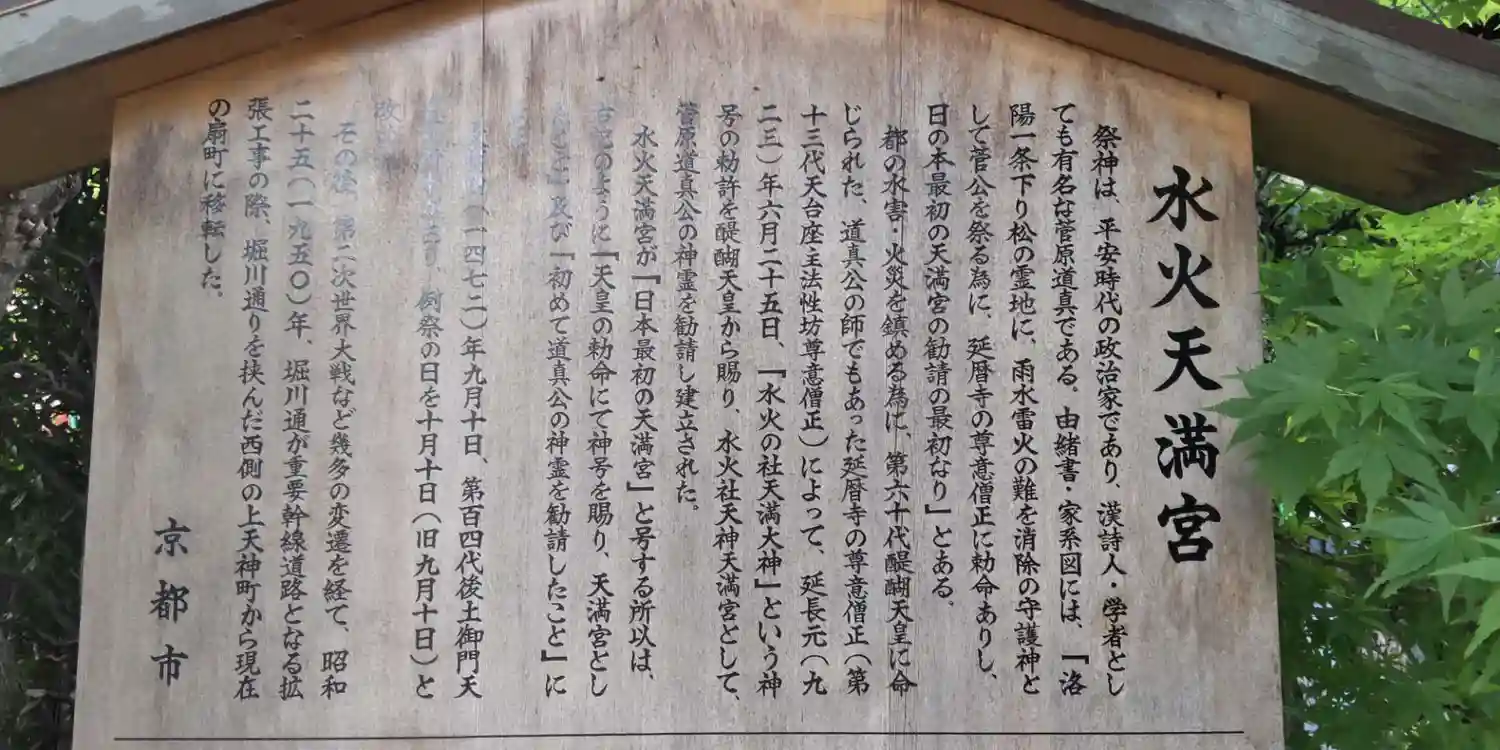 水火天満宮
祭神は、平安時代の政治家であり、漢詩人・学者とし
ても有名な菅原道真である。由緒書・家系図には、「洛
陽一条下り松の霊地に、雨水雷火の難を消除の守護神と
して菅公を祭る為に、延暦寺の尊意僧正に勅命ありし、
日の本最初の天満宮の勧請の最初なり」とある。
都の水害・火災を鎮める為に、第六十代醍醐天皇に命
じられた、道真公の師でもあった延暦寺の尊意僧正(第
十三代天台座主法性坊尊意僧正)によって、延長元(九
二三)年六月二十五日、「水火の社天満大神」という神
号の勅許を醍醐天皇から賜り、水火社天神天満宮として、
菅原道真公の神霊を勧請し建立された。
水火天満宮が「日本最初の天満宮」と号する所以は、
右記のように「天皇の勅命にて神号を賜り、天満宮とし
たこと」及び「初めて道真公の神霊を勧請したこと」に
(一四七二)年九月十日、第百四代後土御門天
り、例祭の日を十月十日(旧九月十日)と
改
その後、第二次世界大戦など幾多の変遷を経て、昭和
二十五(一九五〇)年、堀川通が重要幹線道路となる拡
張工事の際、堀川通りを挟んだ西側の上天神町から現在
の扇町に移転した。
京都市